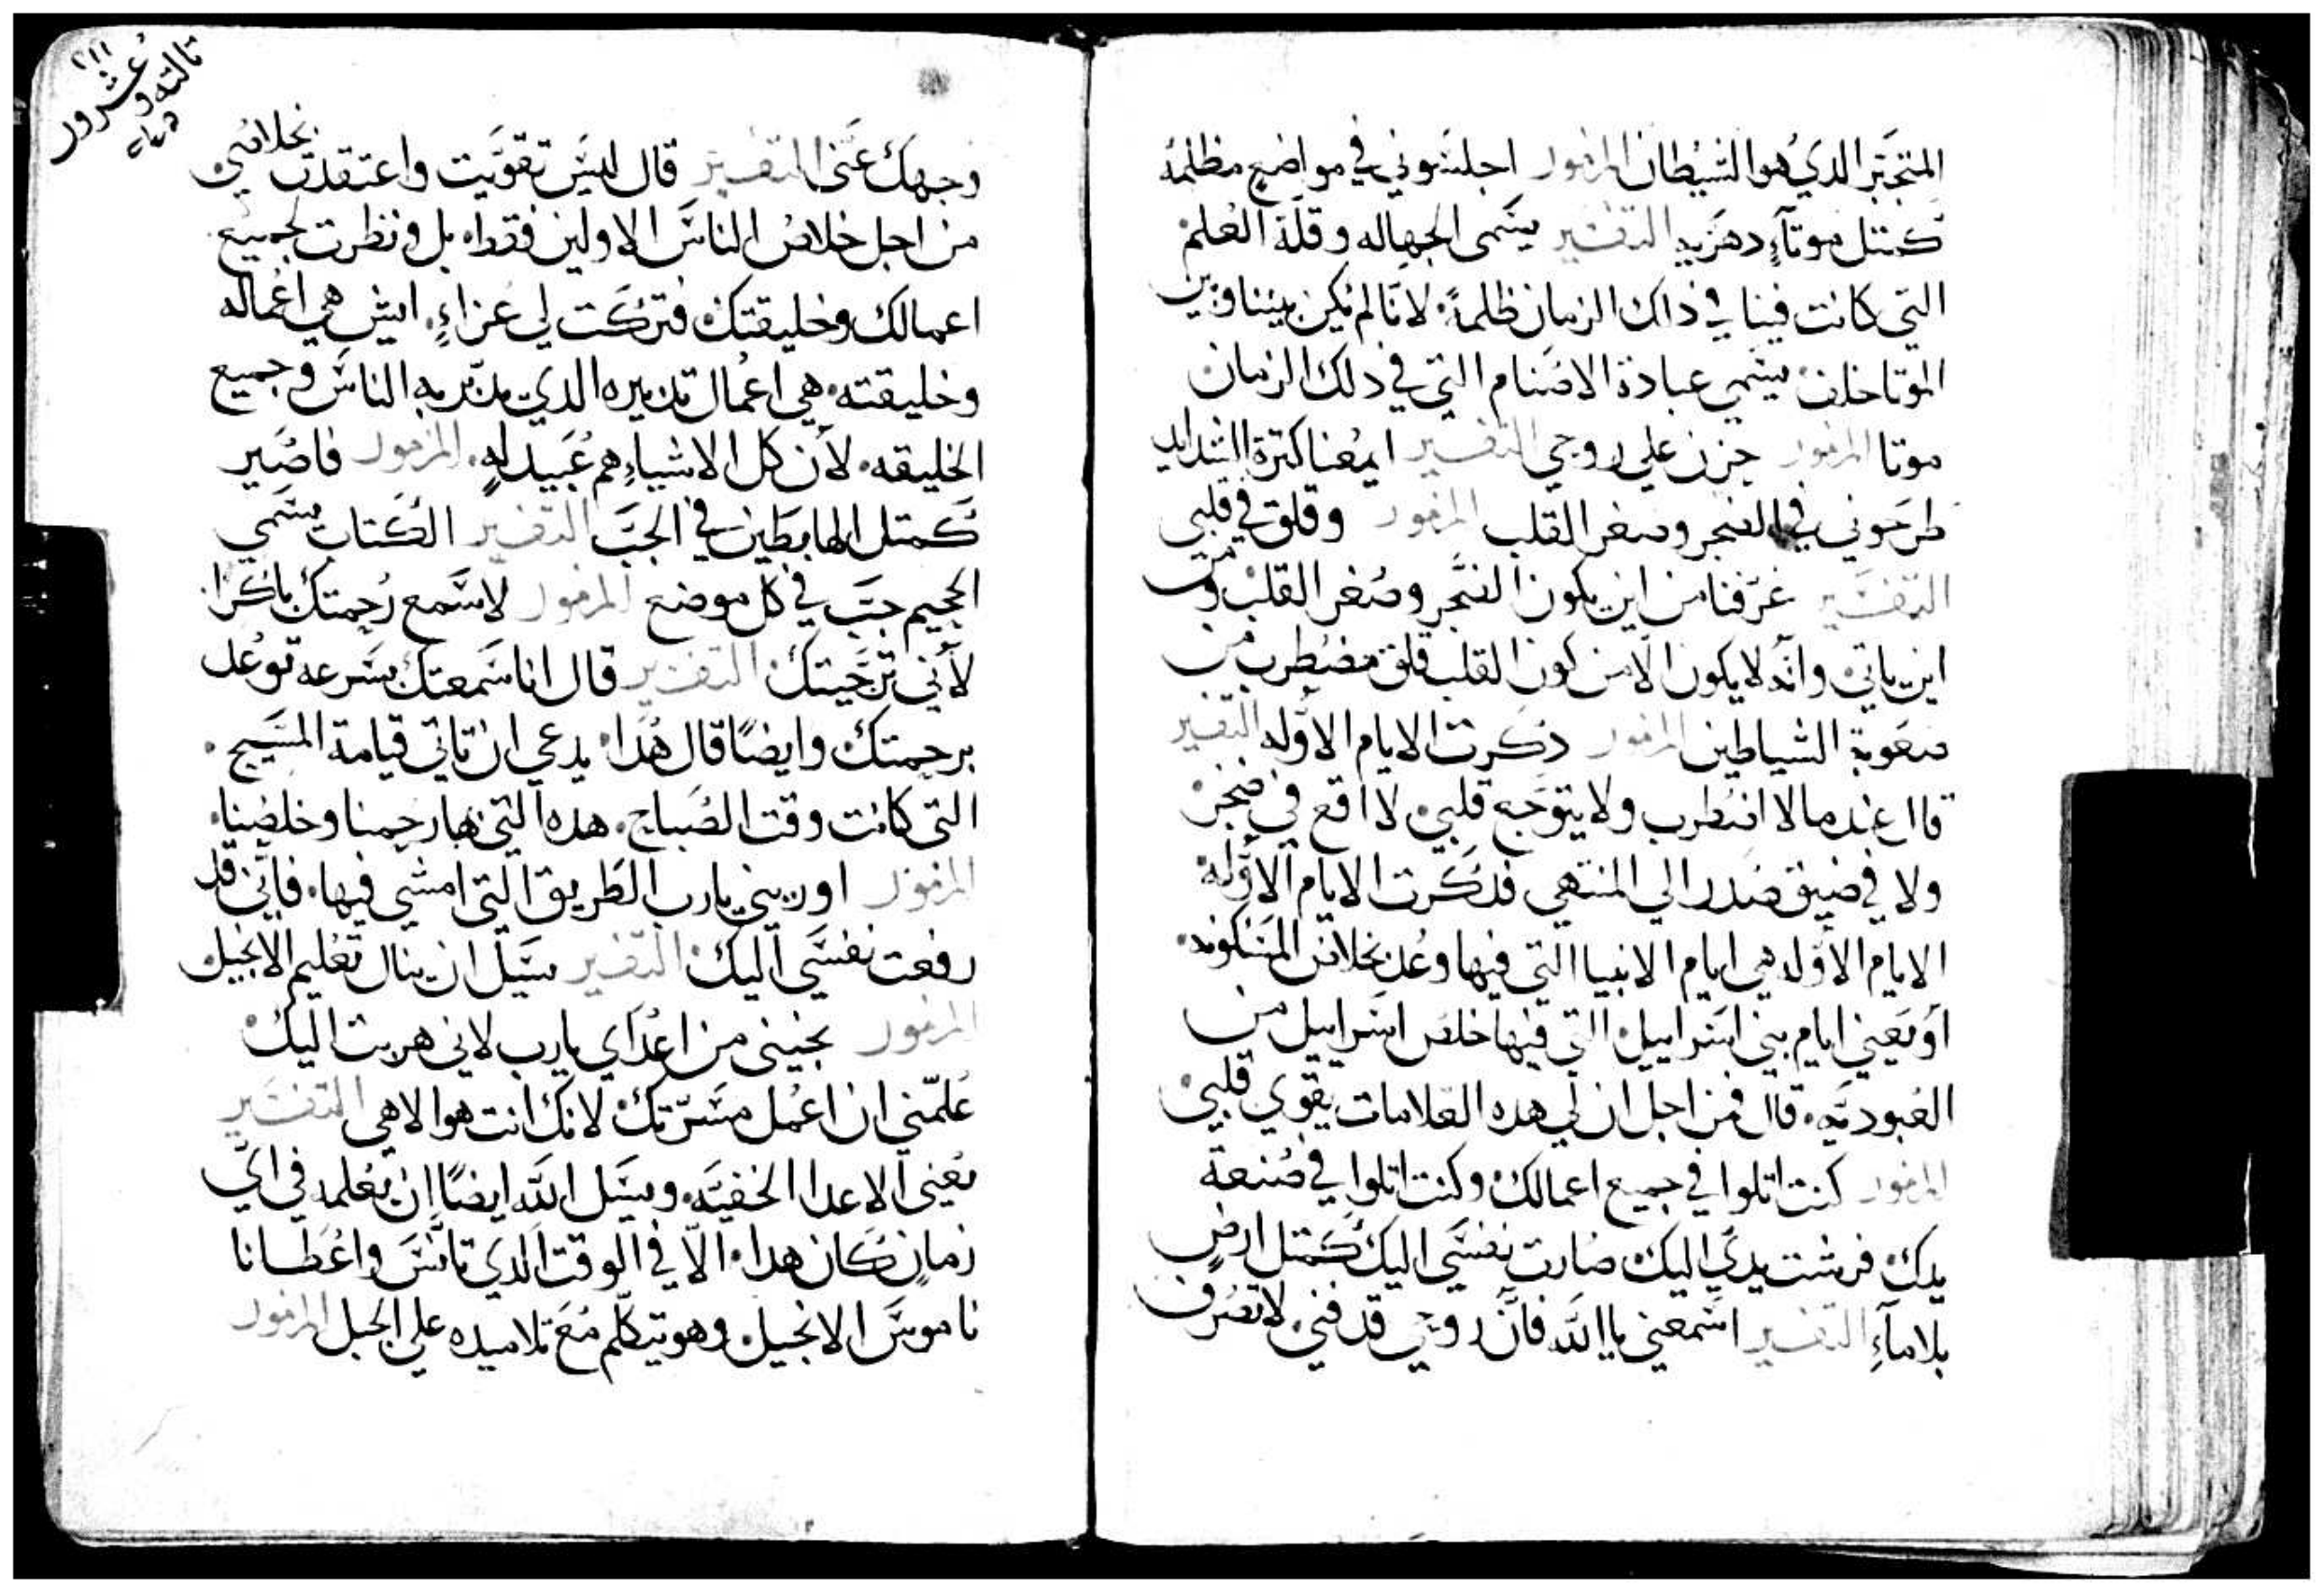 المتجبّر الدي هو الشيطان المزمور اجلسوني في مواضع مظلمه
كمتل موتآءٍ دهريه التفسير يسمى الجهاله وقلّة العلم
التي كانت فينا في داك الزمان ظلمةً لانّا لم نكن بيننا وبين
الموتا خلف يسمي عبادة الاصنام التي في دلك الزمان
موتا المزمور حزن علي روحي التفسير ايمعنا كترة الشدايد
طرحوني في الضجر وصغر القلب المزمور وقلق في قلبي
التفسير عرّفنا من اين يكون الضجر وصغر القلب ومن
اين ياتي وانّه لا يكون الّا من كون القلب قلق مضطرب من
صعوبة الشياطين المزمور دكرت الايام الاوّله التفسير
قال عندما لا اضطرب ولا يتوجّع قلبي لا اقع في ضجر
ولا في ضيق صدر الي المنتهي فدكرت الايام الاوّله
الايام الاوّله هي ايام الانبيا التي فيها وعد بخلاص المسكونه
أو تعني ايام بني اسراييل التي فيها خلص اسراييل من
العبوديّه قال فمن اجل ان لي هده العلامات يقوي قلبي
المزمور كنت اتلوا في جميع اعمالك وكنت اتلوا في صنعة
يدك فرشت يديّ اليك صارت نفسي اليك كمتل ارضٍ
بلا مآءٍ التفسير اسمعني يا الله فانّ روحي قد فني لا تصرف
٢١١
تالته وعشرور
وجهك عنّي التفسير قال ليس تقوّيت واعتقدت بخلاصي
من اجل خلاص الناس الاولين فقط بل ونظرت لجميع
اعمالك وخليقتك فتركت لي عزاءٍ ايش هي اعماله
وخليقته هي اعمال تدبيره الدي يدبّر به الناس وجميع
الخليقه لأن كل الاشياءِ هم عبيد له المزمور فاصير
كمتل الهابطين في الجبّ التفسير الكتاب يسمي
الجحيم جبّ في كل موضع المزمور لاسمع رحمتك باكرا
لأني ترجّيتك التفسير قال انا سمعتك بسرعه توعد
برحمتك وايضًا قال هدا يدعي ان تاتي قيامة المسيح
التي كانت وقت الصباح هده التي بها رحمنا وخلصنا
المزمور اوريني يارب الطريق التي امشي فيها فانّي قد
رفعت نفسي اليك التفسير يسيل ان ينال تعليم الانجيل
المزمور نجيني من اعداي يارب لاني هربت اليك
علّمني ان اعمل مسرّتك لانّك انت هو الاهي التفسير
يعني الاعدا الخفيّه ويسيل الله ايضًا ان يعلمه في ايّ
زمانٍ كان هدا الّا في الوقت الدي تانّس واعطانا
ناموس الانجيل وهو يتكلّم مع تلاميده علي الجبل المزمور